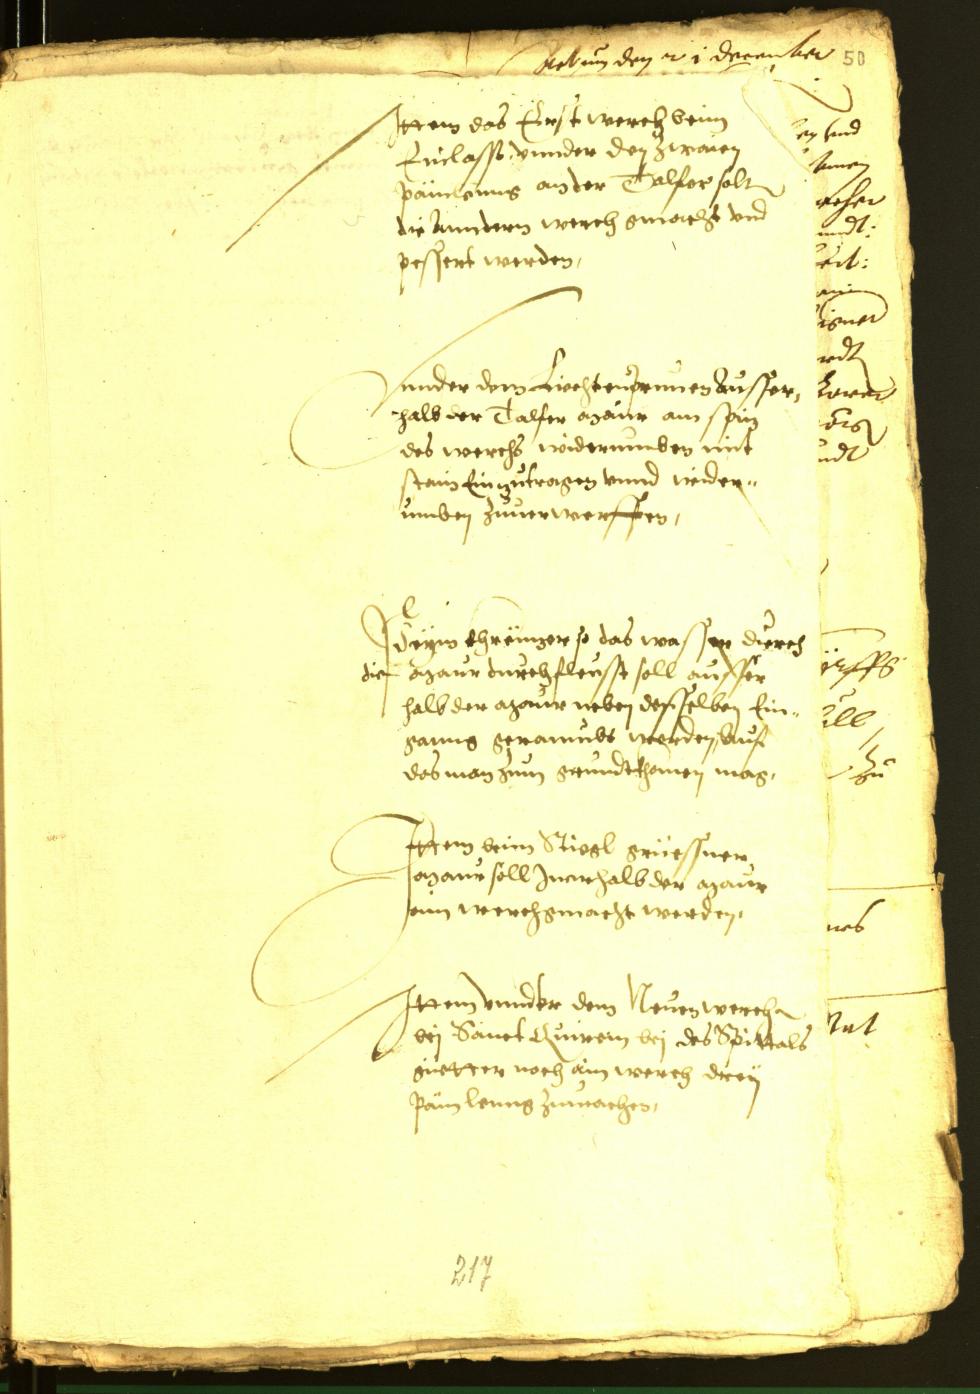 Actum den 21 december 50
Ittem das Erst werch beim
Einlasst, vnnder den zwaien
pämleung an der Talfer solt
die anndern werch gmacht vnd
pessert werden,
Vnnder dem Liechtenprunen Ausser„
halb der Talfer maur am spiz
des werchs widerumben mit
stain Einzutragen vnnd wider„
umben zuuerwerffen,
Beym thrëm so das wasser durch
die maur durchfleusst soll ausser
halb der maur neben desselben Ein„
ganng geraumbt werden, auf
das man zum grundt khomen mag,
Ittem beim Stigl
maur soll Innerhalb der maur
ein werch gmacht werden,
Ittem vnnder dem Neuen werch
bej Sanct Quirein bej des Spittals
guetter noch ain werch dreÿ
pämleung zumachen,
217